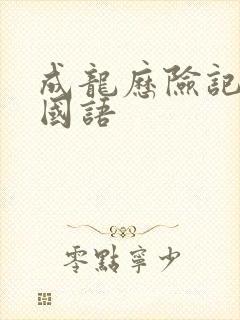 成龍歷險記
國語
零點寧少